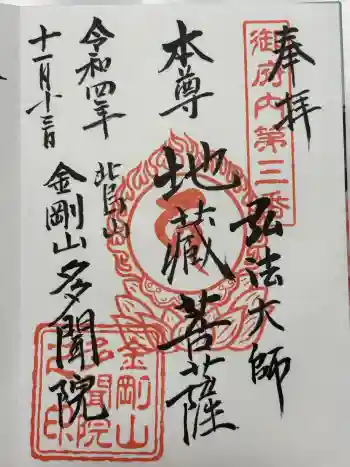 奉拝
御府内第三番
弘法大師
本尊
地蔵菩薩
令和四年
十一月十三日
金剛山多聞院
金剛山
多聞院
之印